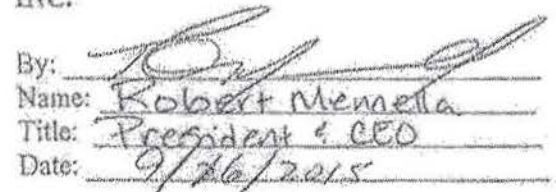 INC.
By:
Name: Robert Mennella
Title: President & CEO
Date: 9/26/2015